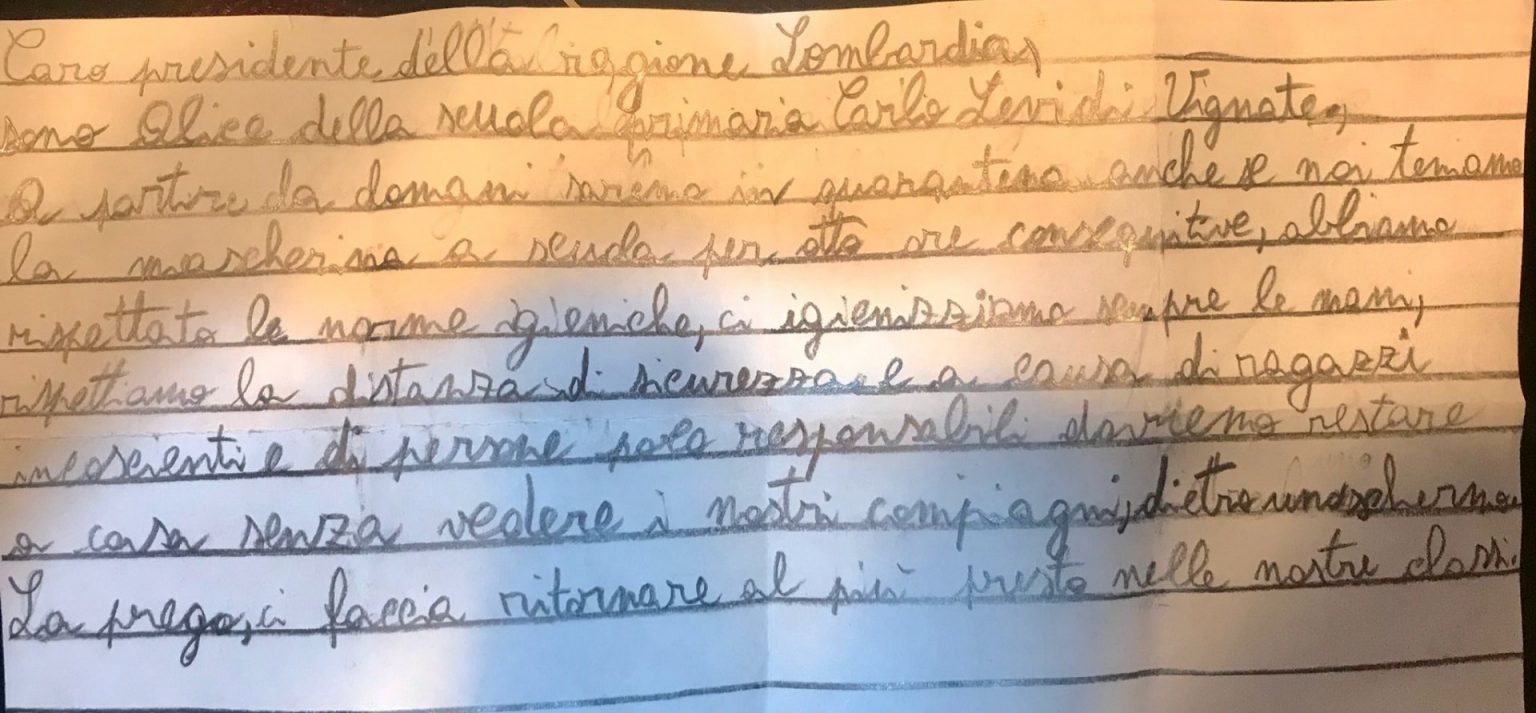 Caro presidente della riggione Lombardia,
sono Alice della scuola primaria Carlo Levi di Vignate,
a partire da domani saremo in quarantena anche se noi teniamo
la mascherina a scuola per otto ore consequitive, abbiamo
rispettato le norme igieniche, ci igienizziamo sempre le mani,
rispettiamo la distanza di sicurezza e a causa di ragazzi
incoscienti e di persone poco responsabili dovremo restare
a casa senza vedere i nostri compiagni, dietro uno schermo.
La prego, ci faccia ritornare al più presto nelle nostre classi.